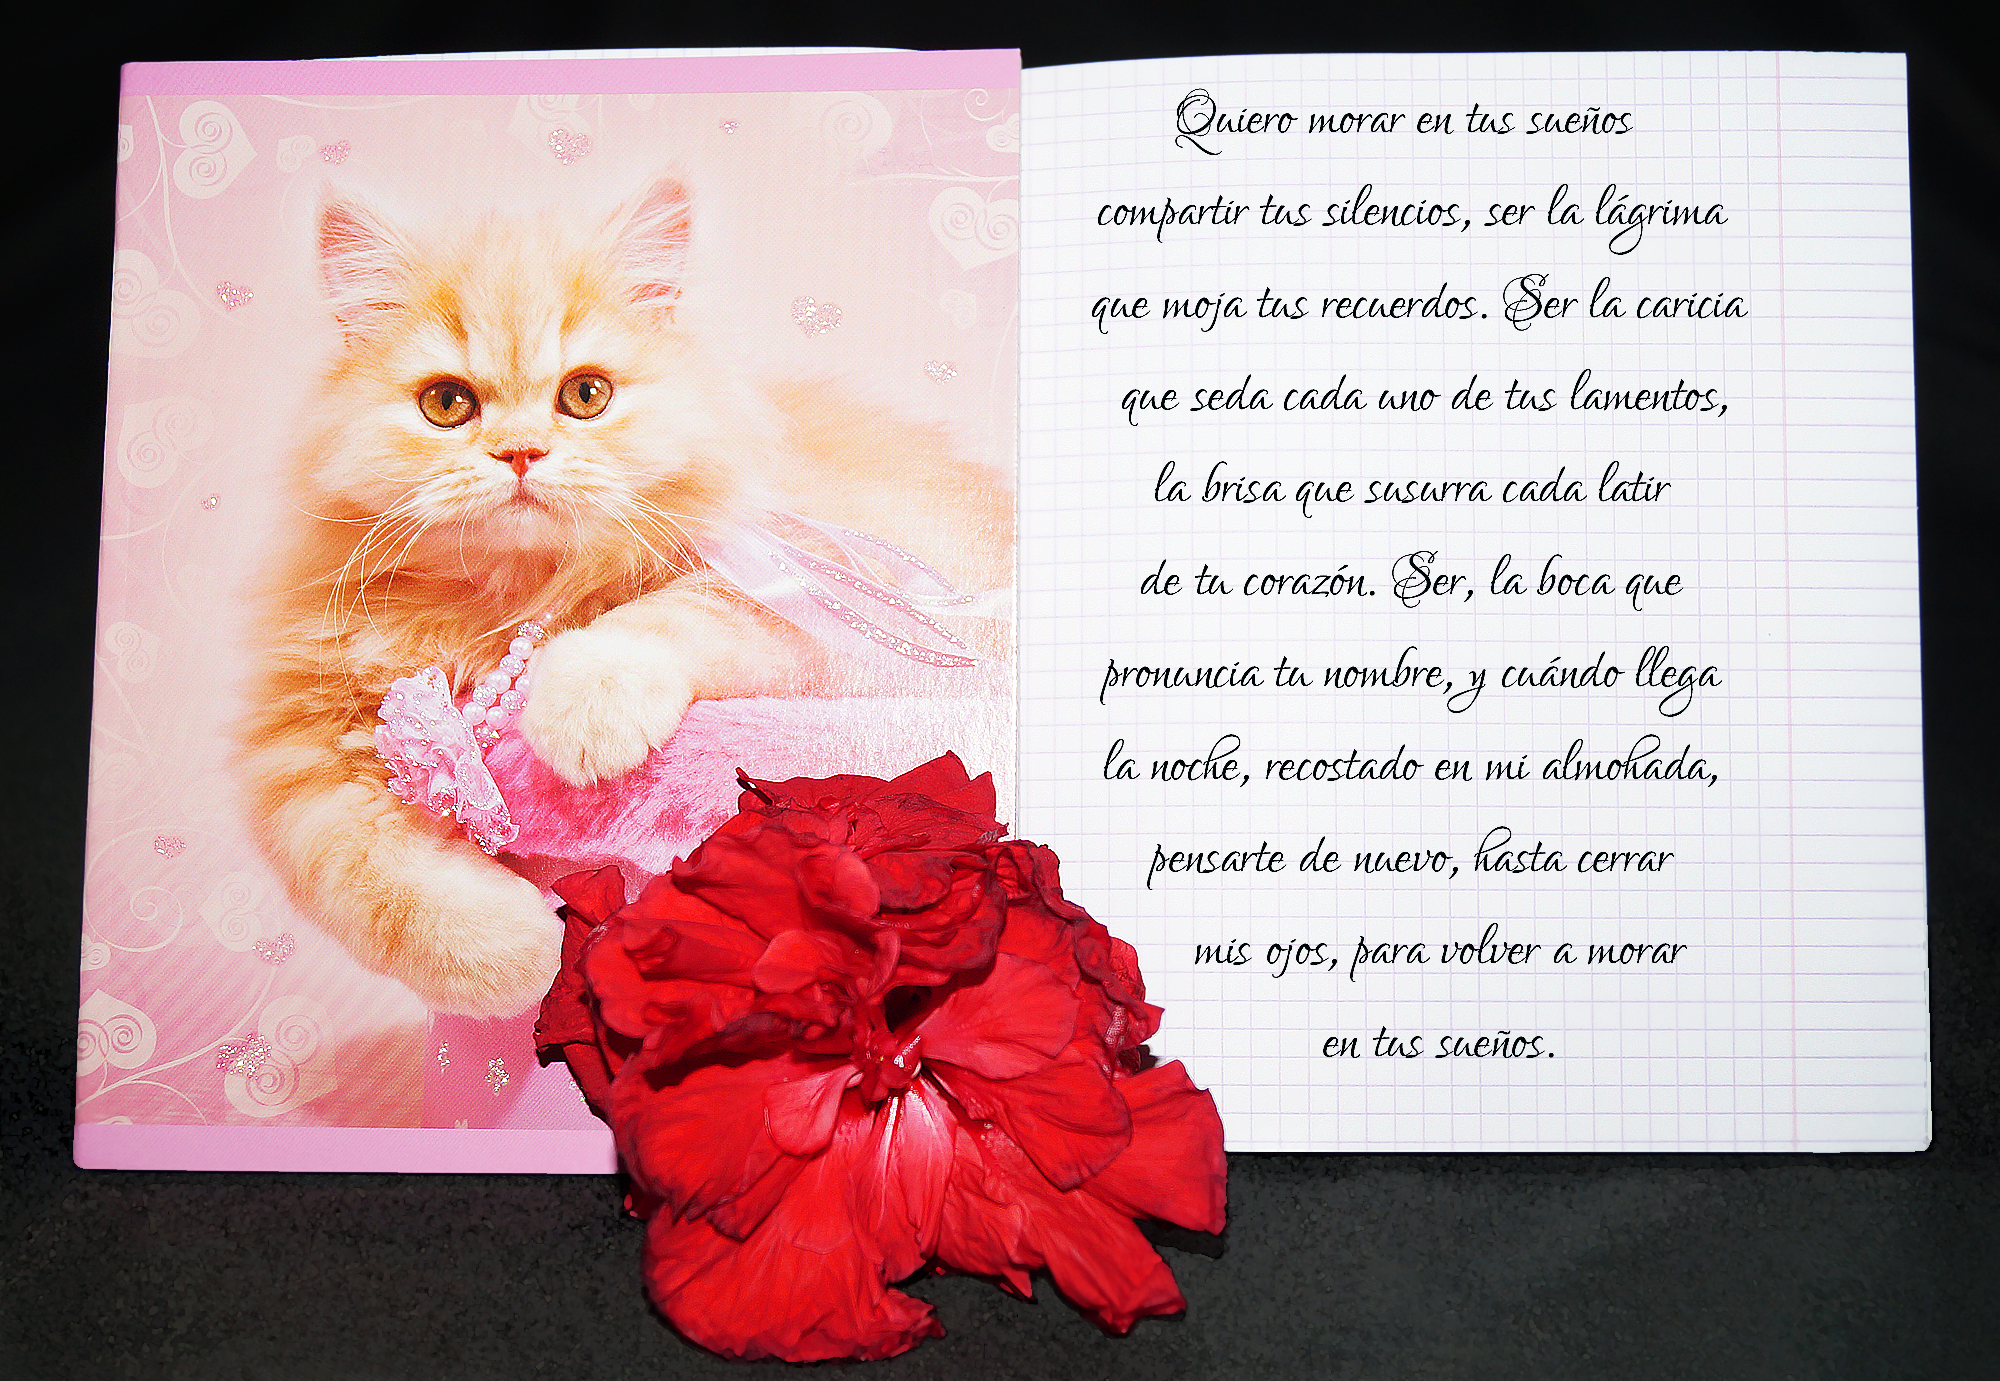 Quiero morar en tus sueños
compartir tus silencios, ser la lágrima
que moja tus recuerdos. Ser la caricia
que seda cada uno de tus lamentos,
la brisa que susurra cada latir
de tu corazón. Ser, la boca que
pronuncia tu nombre, y cuándo llega
la noche, recostado en mi almohada,
pensarte de nuevo, hasta cerrar
mis ojos, para volver a morar
en tus sueños.